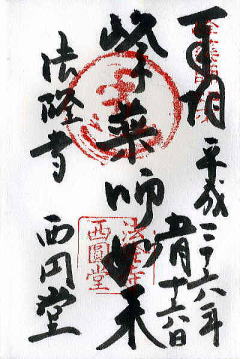 奉拝
平成二十六年
月十六日
峰薬師如来
法隆寺
西円堂
法隆寺
西圓堂